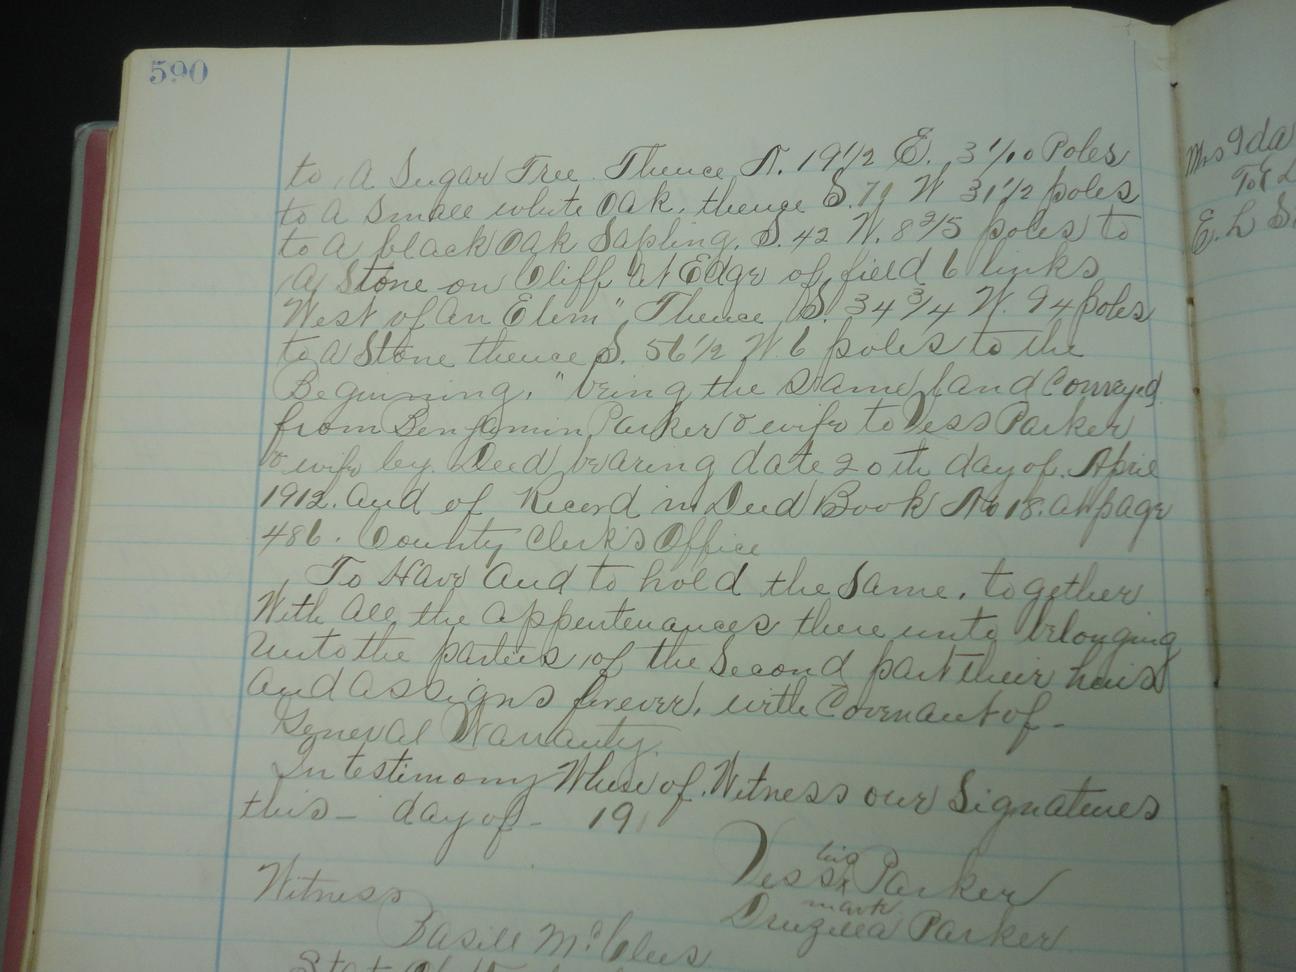 590
to a Sugar Tree Thence N. 19 1/2 E. 3 1/10 Poles
to a Small white Oak, thence S. 71 W 31 1/2 poles
to a black Oak Sapling, S. 42 W. 8 2/5 poles to
a Stone on Cliff at Edge of field 6 links
West of an Elem", Thence S. 34 3/4 W. 94 poles
to a Stone thence S. 56 1/2 W. 6 poles to the
Beginning." being the same land Conveyed
from Benjamin Parker & wife to Vess Parker
& wife by Deed bearing date 20th day of April
1912. and of Record in Deed Book No 18. at page
486. County Clerk's Office
To Have and to hold the Same, together
With all the appentenances there unto belonging
Unto the parties of the Second part their heirs
and assigns forever, with Covenant of -
General Warranty.
In testimony Where of. Witness our Signatures
this - day of - 191
his
Vess x Parker
mark
Witness
Druzilla Parker
Basill
Mrs Ida
To
E. L